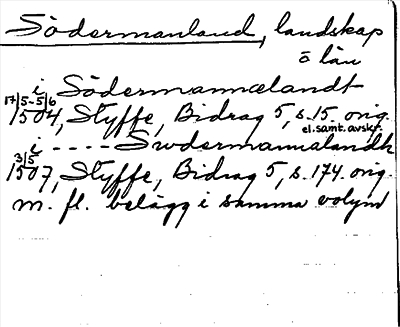 Södermanland, landskap
o län
i Södermannælandt
17/5-5/6 1504, Styffe, Bidrag 5, s. 15. orig.
el. samt. avskr.
i ---- Swdermannalandh
3/5 1507, Styffe, Bidrag 5, s. 174. orig.
m. fl. belägg i samma volym